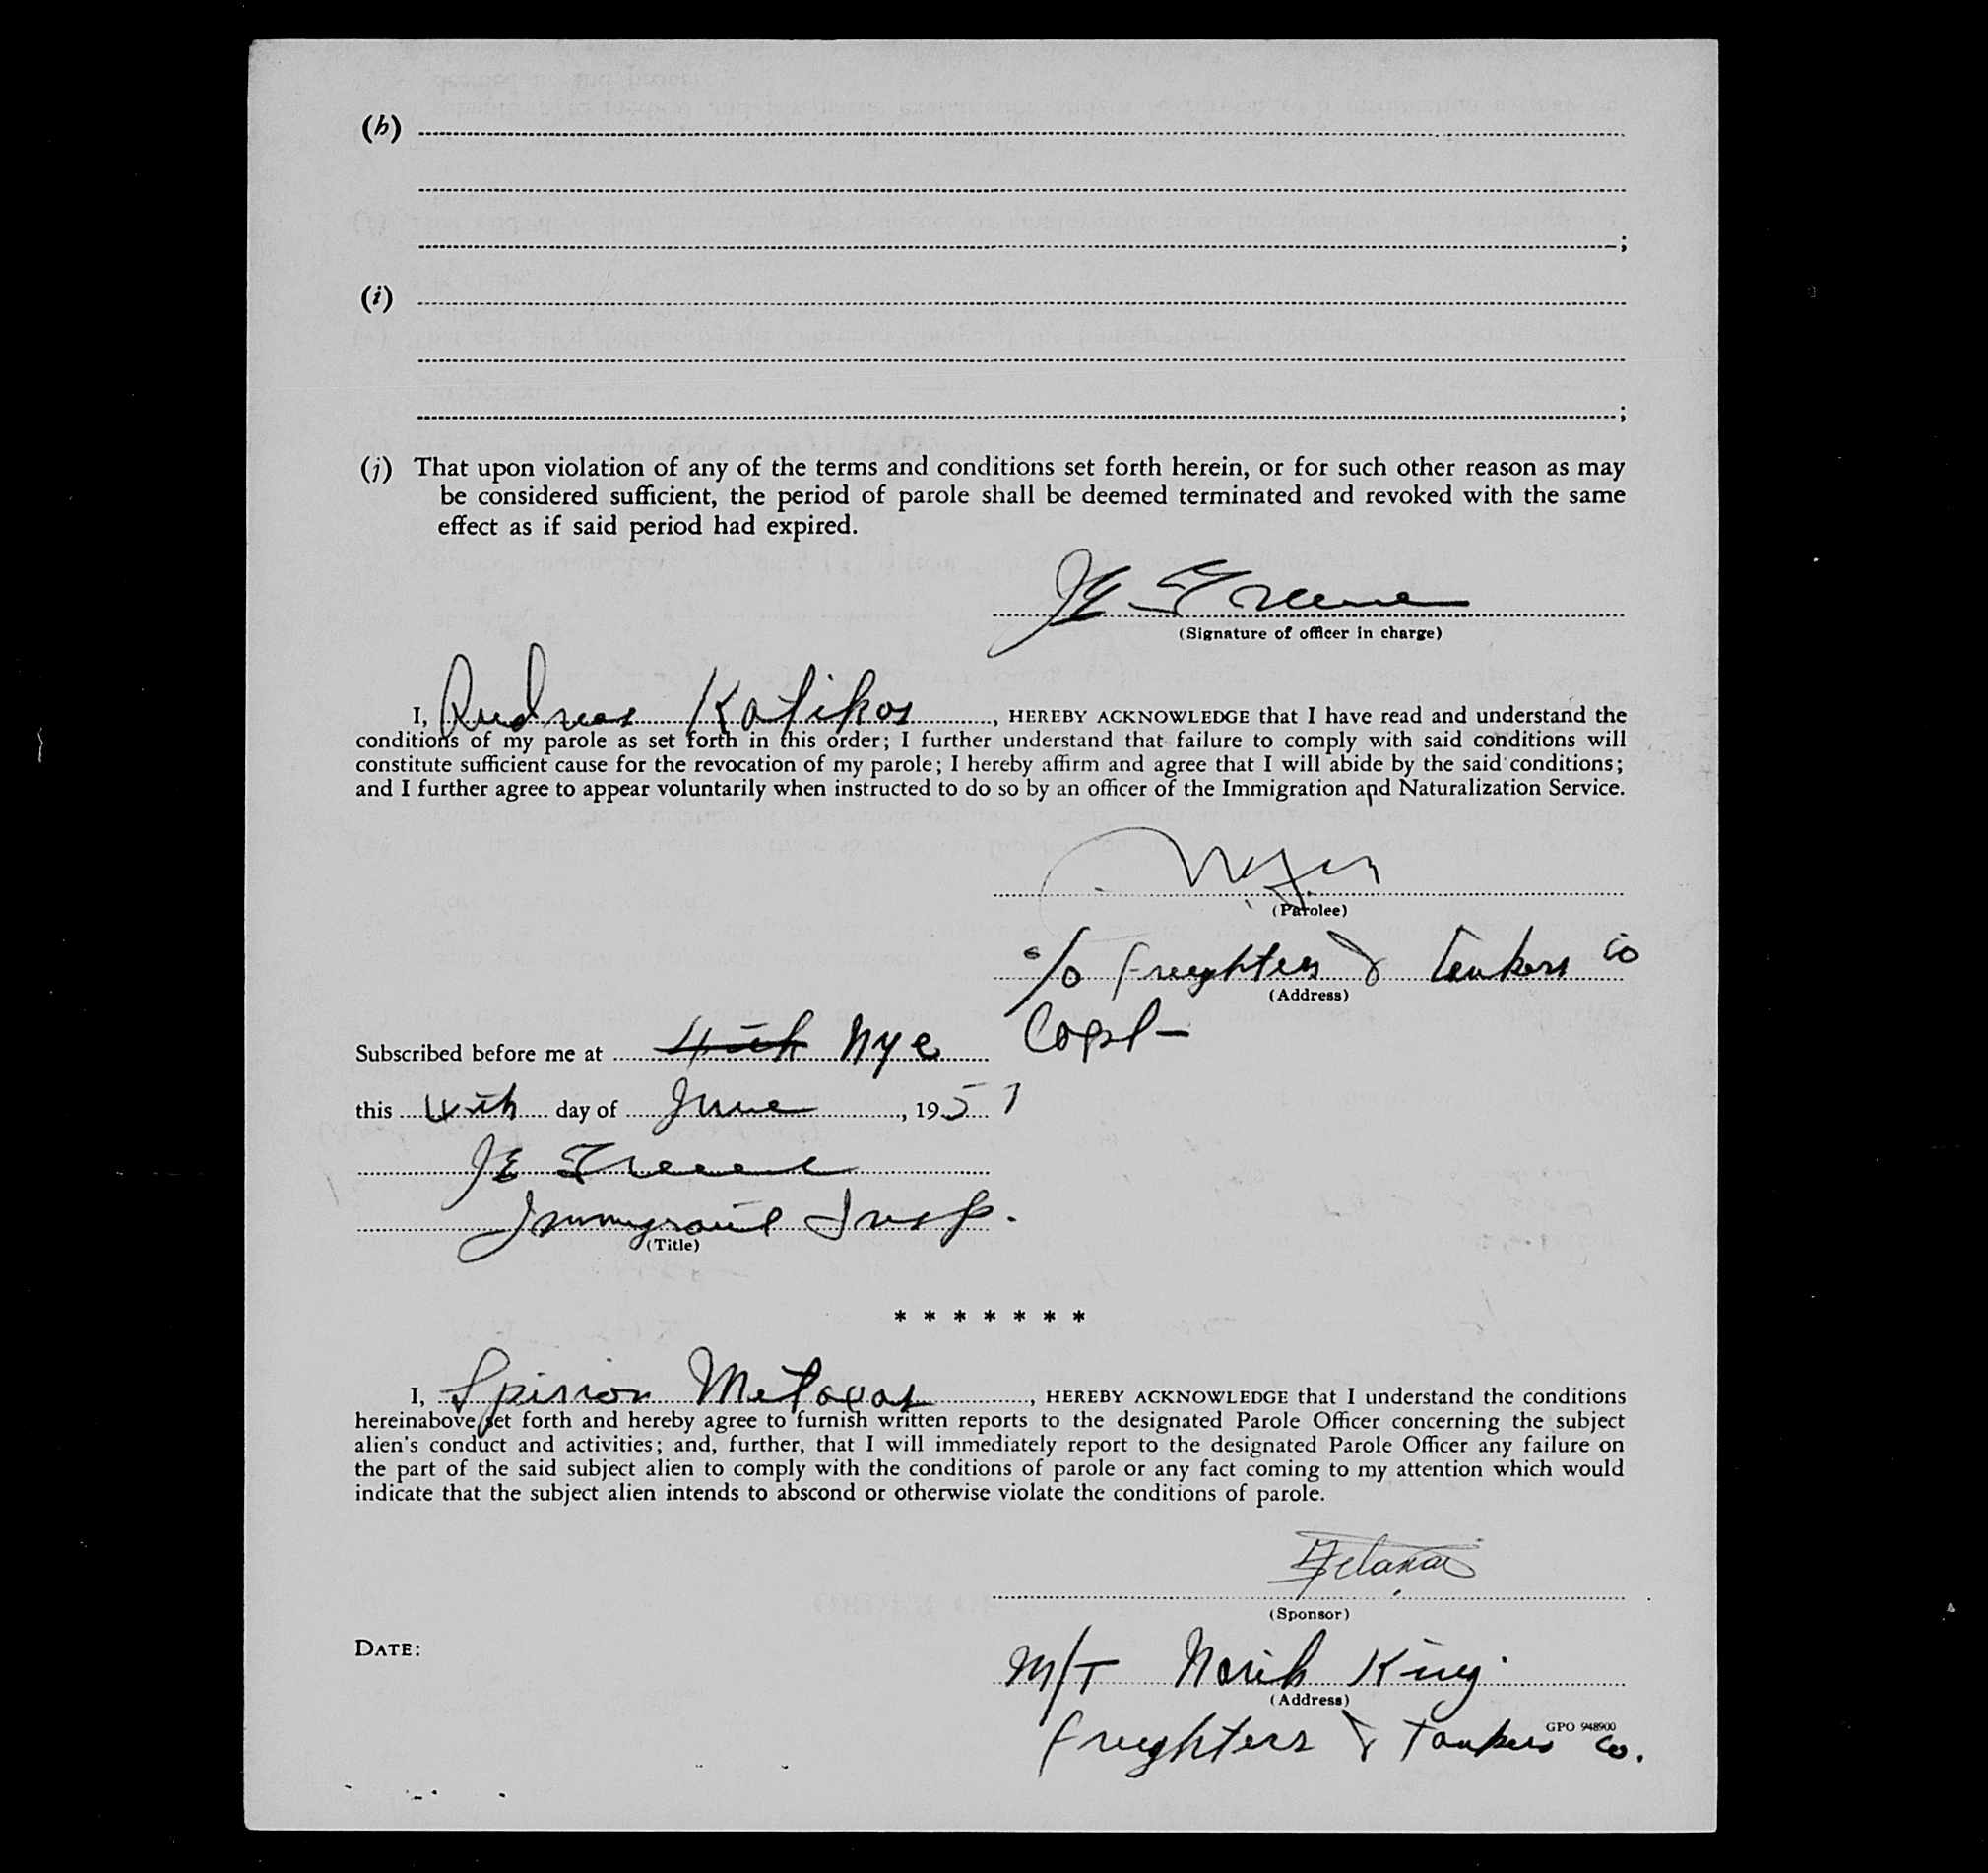 (h)
;
(i)
;
(j) That upon violation of any of the terms and conditions set forth herein, or for such other reason as may
be considered sufficient, the period of parole shall be deemed terminated and revoked with the same
effect as if said period had expired.
JE Greene
(Signature of officer in charge)
I, Andreas Katikos, HEREBY ACKNOWLEDGE that I have read and understand the
conditions of my parole as set forth in this order; I further understand that failure to comply with said conditions will
constitute sufficient cause for the revocation of my parole; I hereby affirm and agree that I will abide by the said conditions;
and I further agree to appear voluntarily when instructed to do so by an officer of the Immigration and Naturalization Service.
(Parolee)
c/o Freighters & Tankers Co
(Address)
Subscribed before me at Nye
this day of June, 1951
JE Greene
Immigrant Insp.
(Title)
* * * * * * *
I, Spirron Metaxas, HEREBY ACKNOWLEDGE that I understand the conditions
hereinabove set forth and hereby agree to furnish written reports to the designated Parole Officer concerning the subject
alien's conduct and activities; and, further, that I will immediately report to the designated Parole Officer any failure on
the part of the said subject alien to comply with the conditions of parole or any fact coming to my attention which would
indicate that the subject alien intends to abscond or otherwise violate the conditions of parole.
(Sponsor)
DATE:
M/T King
(Address)
GPO 948900
Freighters & Tankers Co.